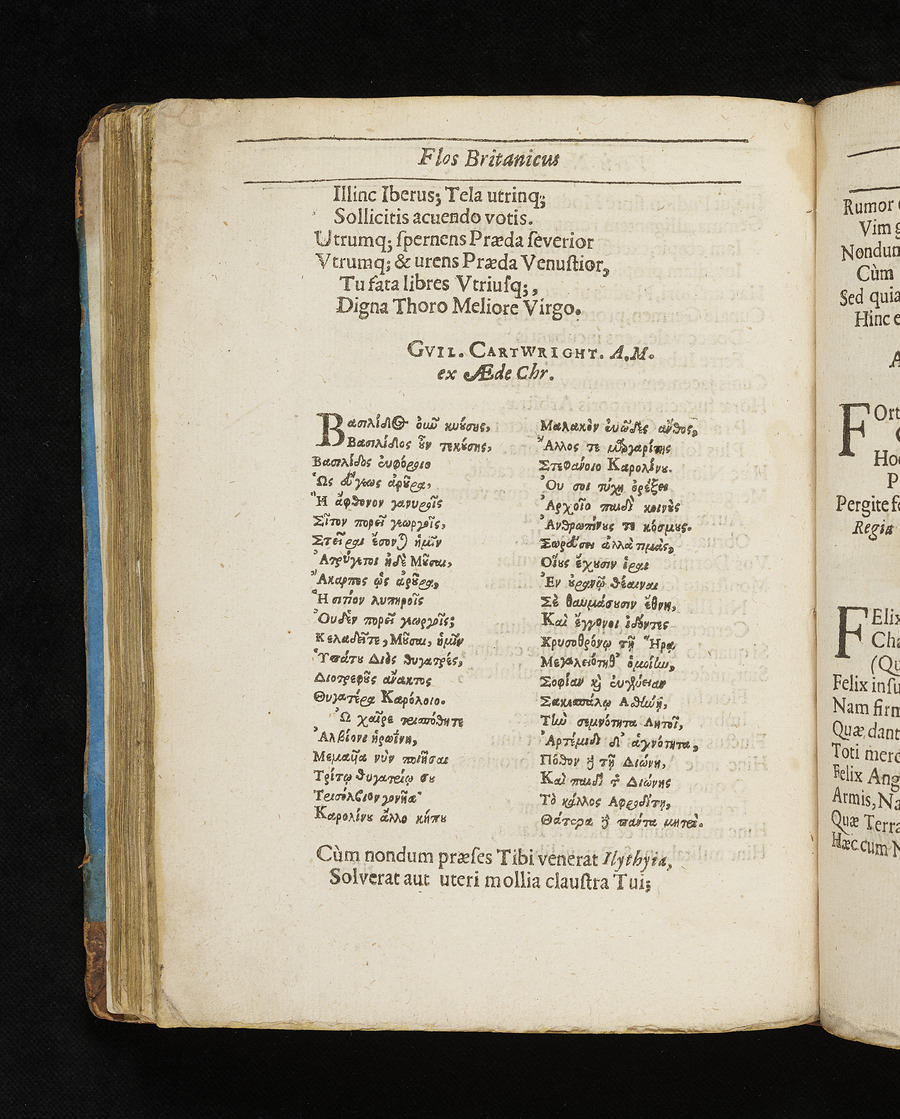 Flos Britanicus
Illinc Iberus; Tela utrinq;
Sollicitis acuendo votis.
Utrumq; ſpernens Præda ſeverior
Vtrumq; & urens Præda Venuſtior,
Tu fata libres Vtriuſq;,
Digna Thoro Meliore Virgo.
GVIL. CARTWRIGHT. A.M.
ex Æde Chr.
Βασιλίδος
Βασιλίδος ὖν τεκύσης,
Βασιλίδος ἐυφόροιο
Ὡς
Ἢ ἄφθονον
Σῖτον πορεῖ γεωργοῖς,
Στεῖραι ἔσονται ἡμῖν
Ἀτρύγετοι ἠδὲ Μοῦσαι,
Ἄκαρπος ὡς ἄρουρα,
Ἢ σιτίον λυπηροῖς
Ὀυδὲν πορεῖ γεωργοῖς;
Κελαδεῖτε, Μοῦσαι, ἡμῖν
Ὑπάτου Διὸς θυγατρές,
Διοτρεφοῦς ἄνακτος
Θυγατέρα Καρόλοιο.
Ὦ χαῖρε τρισπόθητε
Ἀλβίονι ἡρωΐνη,
νῦν ποιῆσαι
Τρίτῳ θυγατρίῳ σου
Καρολίνου ἄλλο κήπου
Μαλακὸν ἐυῶδες ἄνθος,
Ἄλλος τε μαργαρίτης
Στεφάνοιο Καρολίνου.
Ὀυ σοι τύχη ὀρέξει
Ἀρχοῖο παιδὶ κοινὸς
Ἀνθρωπίνους τε κόσμους.
ἀλλὰ τιμὰς,
Οἵους ἔχουσιν ἱραὶ
Ἐν οὐρανῷ θέαιναι
Σὲ θαυμάσουσιν ἔθνη,
Καὶ ἔγγονοι ἰδόντες
Χρυσοθρόνῳ τῇ Ἥρᾳ
ὁμοίαν,
Σοφίαν καὶ
Ἀθήνῃ,
Τὴν σεμνότητα Λητοῖ,
Ἀρτέμιδι δ' ἁγνότητα,
Πόθον δὲ τῇ Διώνῃ,
Καὶ παιδὶ τῆς Διώνης
Τὸ κάλλος Αφροδίτῃ,
Θάτερα δὲ πάντα μητρί.
Cùm nondum præſes Tibi venerat Ilythyia,
Solverat aut uteri mollia clauſtra Tui;
Rumor
Vim
Nondum
Cùm
Sed quia
Hinc
Hoc
Pergite
Regia
Cha
(Qu
Felix
Nam firm
Quæ dant
Toti
Felix Ang
Armis, Na
Quæ Terra
Hæc cum N